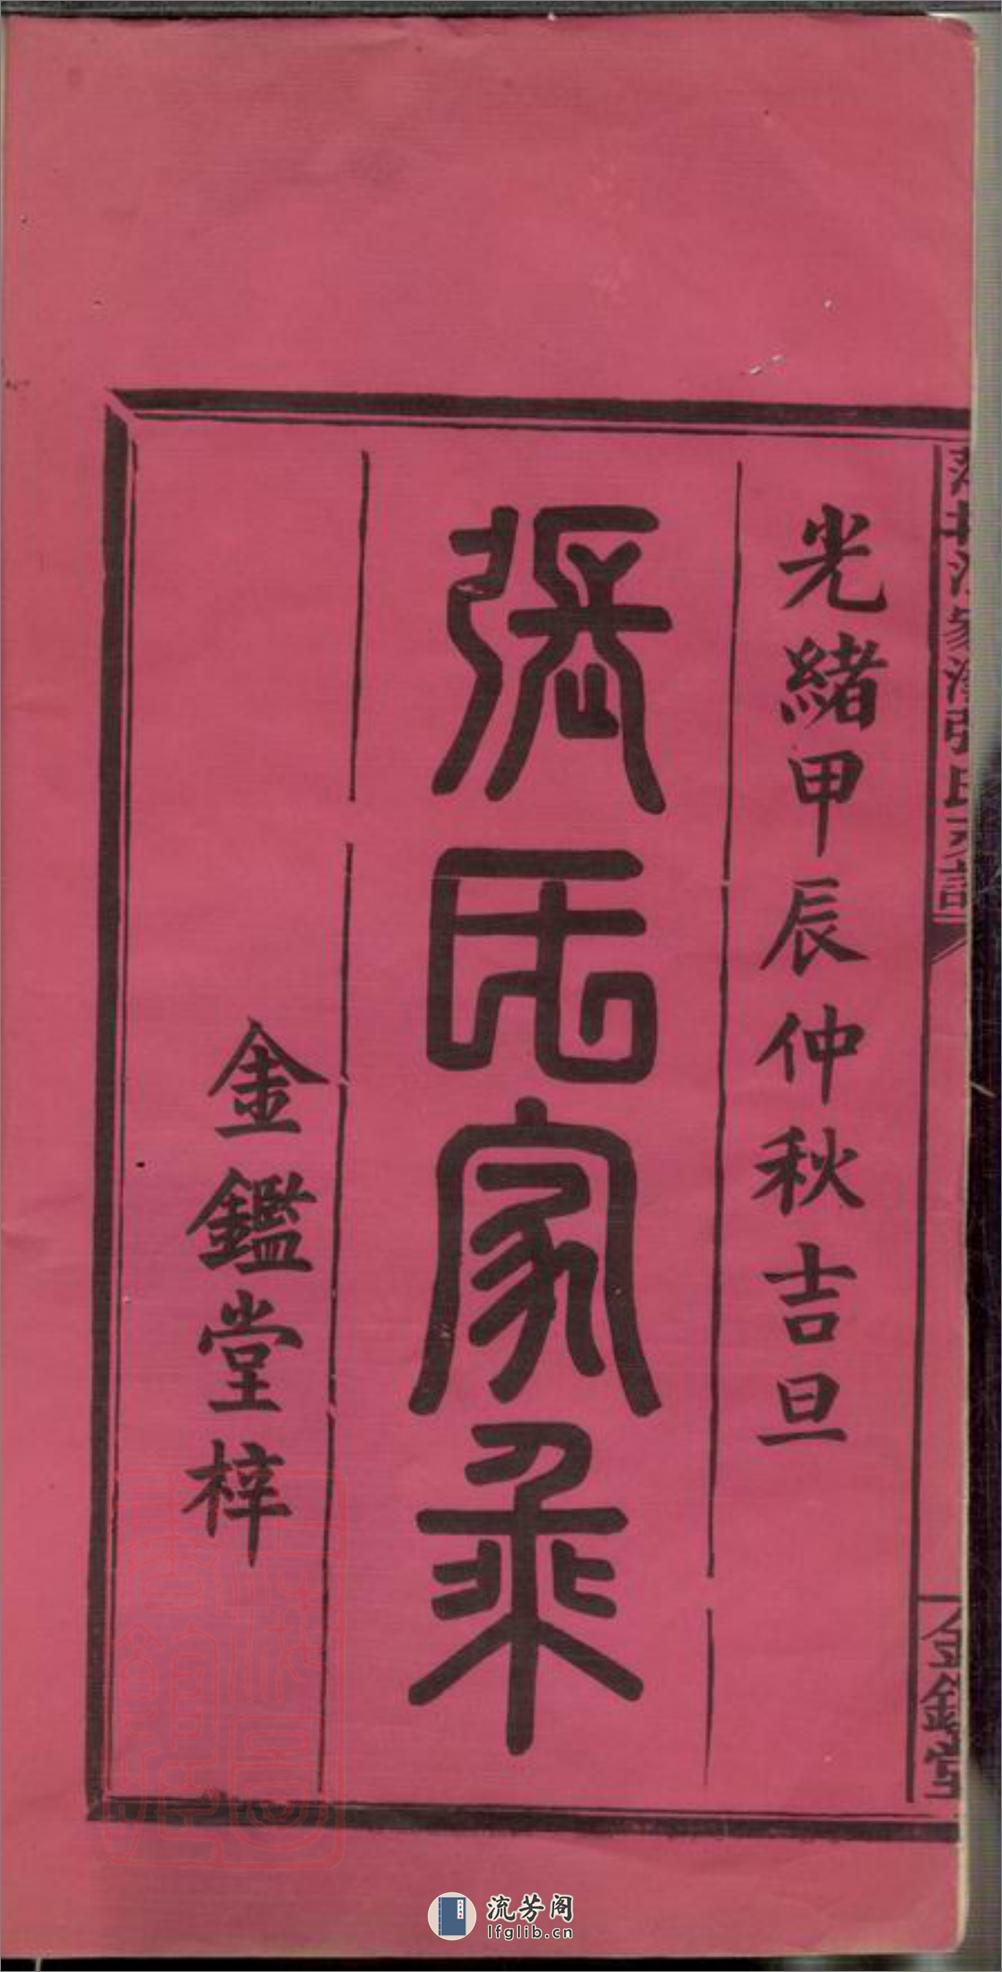 光緒甲辰仲秋吉旦
張氏家乘
金鑑堂梓
張氏宗譜
金鑑堂
流芳阁
lfglib.cn